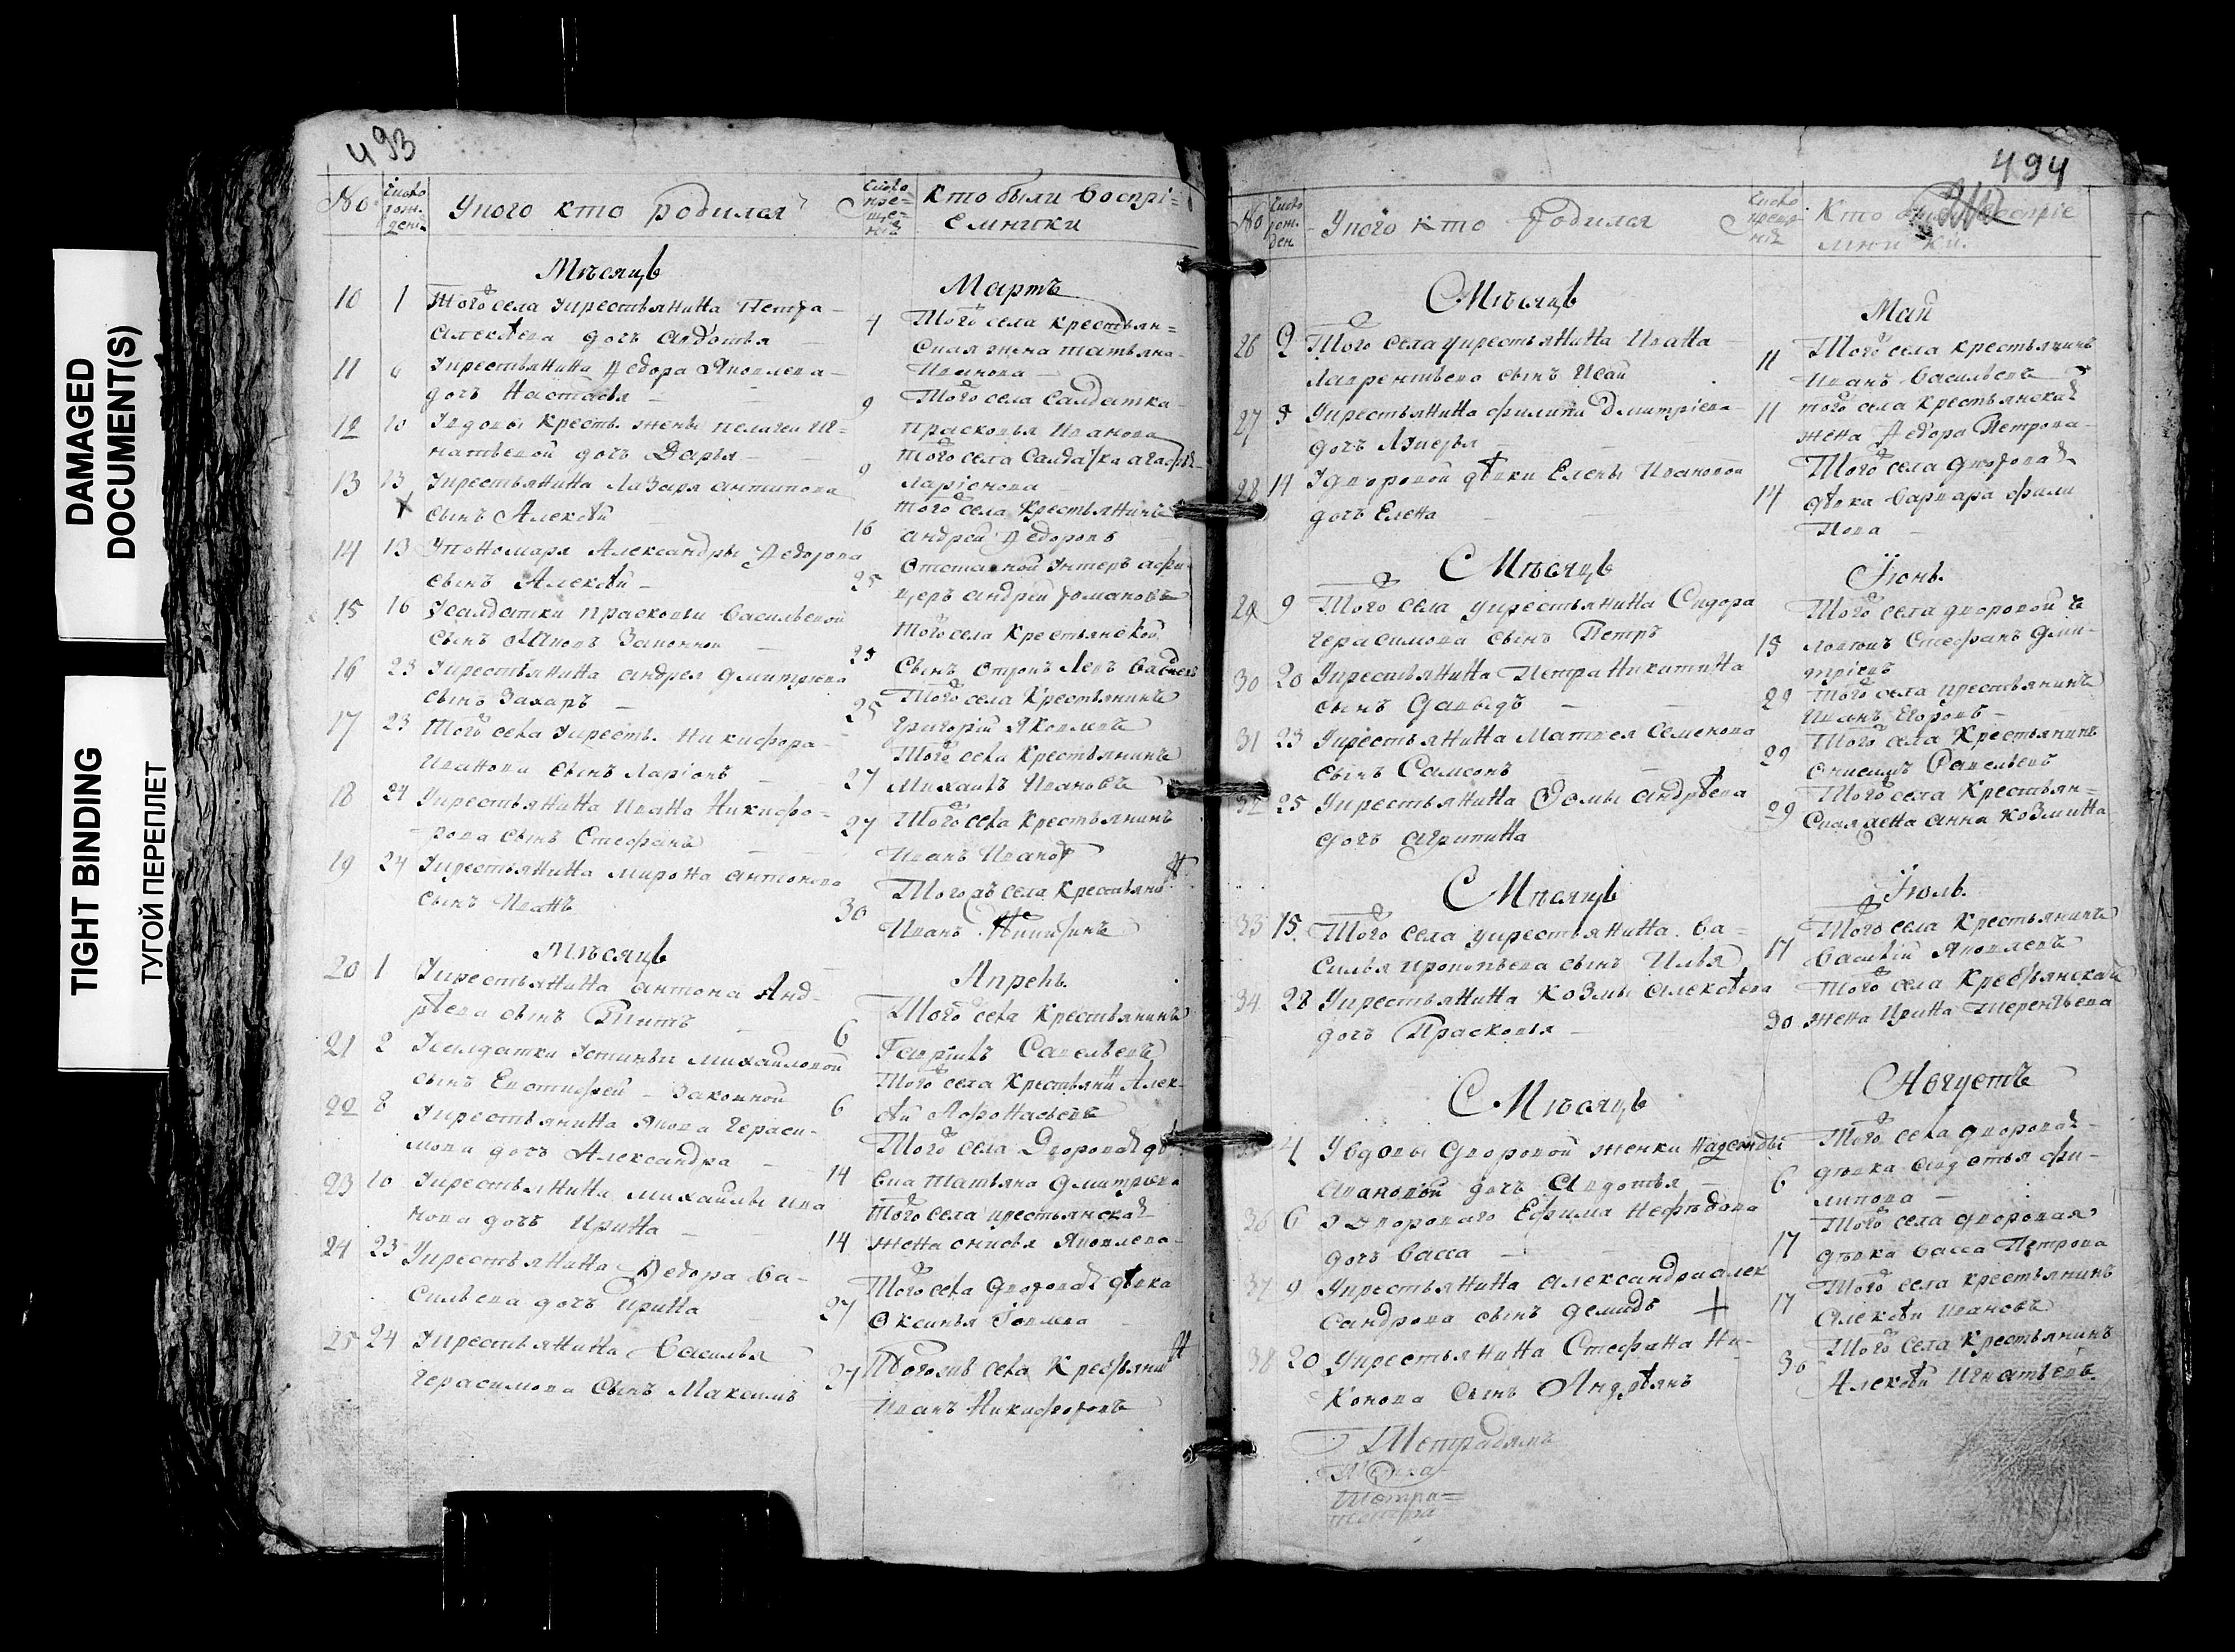 DAMAGED
DOCUMENT(S)
TIGHT BINDING
ТУГОЙ ПЕРЕПЛЕТ
493
№ Число рож-дени У кого кто родился Число кре-ще-нiя Кто были восприемники
Мѣсяцъ Мартъ
10 1 Того села у крестьянина Петра
Алексѣева дочь Авдотья
4 Того села крестьян=
ская жена Татьяна
Иванова
11 У крестьянина Ѳедора Яковлева
дочь Настасья
9 Того села салдатка
Прасковья Иванова
12 10 У вдовы крестъ. жены Пелагеи Иг=
натьевой дочь Дарья
9 Того села салдатка
Ларiонова
13 13 У крестьянина Лазаря Антипова
сынъ Алексѣй
16 Того села крестьянинъ
Андрей Ѳедоровъ
14 13 У пономаря Александры Ѳедорова
сынъ Алексѣй
25 Отставной унтеръ афи
церъ Андрей Романовъ
15 16 У салдатки Прасковьи Васильевой
сынъ Iаковъ Законной
25 Того села крестьянской
сынъ отрокъ Левъ
16 23 У крестьянина Андрея Дмитрiева
сынъ Захаръ
25 Того села крестьянинъ
Григорiй Яковлевъ
17 23 Того села у крестъ. Никифора
Иванова сынъ Ларiонъ
27 Того села крестьянинъ
Михаилъ Ивановъ
18 24 У крестьянина Ивана Никифо=
рова сынъ Стефанъ
27 Того села крестьянинъ
Иванъ Ивановъ
19 24 У крестьянина Мирона Антонова
сынъ Иванъ
30 Того жъ села крестьянинъ
Иванъ
Мѣсяцъ Апрель.
20 1 У крестьянина Антона Анд-
рѣева сынъ Титъ
6 Того села крестьянинъ
Гаврiилъ Савельевъ
21 2 У салдатки Устиньи Михайловой
сынъ Евстифей - Законной
6 Того села крестьянинъ Алек-
сѣй Афонасьевъ
22 8 У крестьянина Якова Гераси-
мова дочь Александра
14 Того села дворовая дѣ
вка Татьяна Дмитрiева
23 10 У крестьянина Михаилы Ива
нова дочь Ирина
14 Того села крестьянская
жена Анисья Яковлева
24 23 У крестьянина Ѳедора Ва-
сильева дочь Ирина
27 Того села дворовая дѣвка
Оксинья Iовлева
25 24 У крестьянина Василья
Герасимова сынъ Максимъ
27 Того жъ села крестьянинъ
Иванъ Никифоровъ
494
№ Число рож-ден У кого кто родился Число крещенiя Кто были воспрiемники.
Мѣсяцъ Май
26 9 Того села у крестьянина Ивана
Лаврентьева сынъ Исай
11 Того села крестьянинъ
Иванъ Васильевъ
27 8 У крестьянина Филипа Дмитрiева
дочь Лукерья
11 того села крестьянская
жена Ѳедора Петрова
28 14 У дворовой дѣвки Елены Ивановой
дочь Елена
14 Того села дворовая
дѣвка Варвара Фили
пова
Мѣсяцъ Iюнь.
29 9 Того села у крестьянина Сидора
Герасимова сынъ Петръ
13 Того села дворовой че
ловѣкъ Стефанъ Дми-
трiевъ
30 20 У крестьянина Петра Никитина
сынъ Давыдъ
29 Того села крестьянинъ
Иванъ Егоровъ
31 23 У крестьянина Матвея Семенова
сынъ Самсонъ
29 Того села крестьянинъ
Онисимъ Савельевъ
32 25 У крестьянина Ѳомы Андрѣева
дочь Агрипина
29 Того села крестьян=
ская жена Анна Козмина
Мѣсяцъ Iюль.
33 15 Того села у крестьянина Ва=
силья Прокопьева сынъ Илья
17 Того села крестьянинъ
Василiй Яковлевъ
34 28 У крестьянина Козмы Алексѣева
дочь Прасковья
30 Того села крестьянская
жена Ирина Терентьева
Мѣсяцъ Августъ
4 У вдовы дворовой женки Надежды
дочь Авдотья
6 Того села дворовая
дѣвка Авдотья Фи-
липова
36 6 У дворового Ефима Нефедова
дочь Васса
17 Того села дворовая
дѣвка Васса Петрова
37 9 У крестьянина Александра Алек
сандрова сынъ Демидъ
17 Того села крестьянинъ
Алексѣй Ивановъ
38 20 У крестьянина Стефана Ни-
конова сынъ Андрѣянъ
30 Того села крестьянинъ
Алексѣй Игнатьевъ